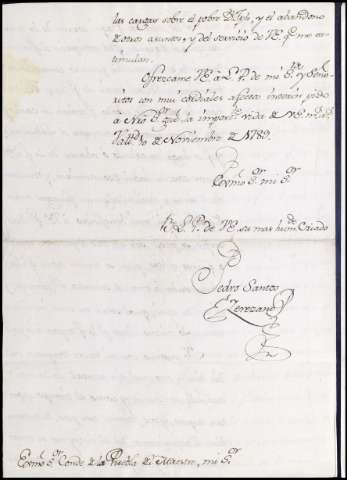 las cargas sobre el pobre y el abandono
de otros asuntos, y del servicio de VE. que me es-
timulan.
Ofrezcame VE. à L. P. de mi S.ra y Seño-
ritos con mui cordiales afectos interin pido
à Nro S.r gue. la import.te vida de VE. m.s a.s
Vall.d 10 de Noviembre de 1789.
Exmo S.or mi S.or
B. L. P. de VE. su mas hum.de Criado
Pedro Santos
Zerezano
Exmo S.or Conde de la Puebla del Maestre, mi S.or